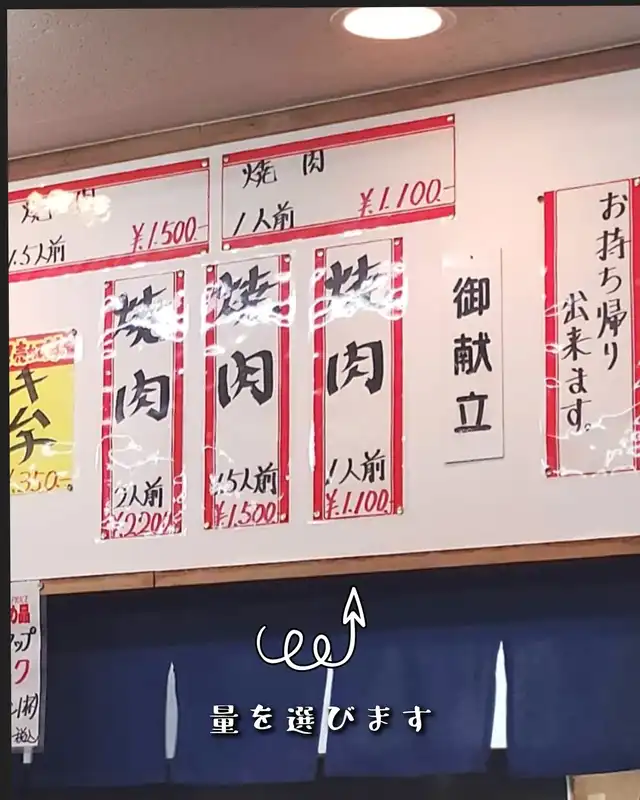 焼肉
1.5人前
¥1.500-
焼肉
1人前
¥1.100-
お持ち帰り
出来ます。
御献立
焼肉
1人前
¥1.100
焼肉
1.5人前
¥1.500
焼肉
2人前
¥2200
弁
350.-
品
ップ
ク
量を選びます